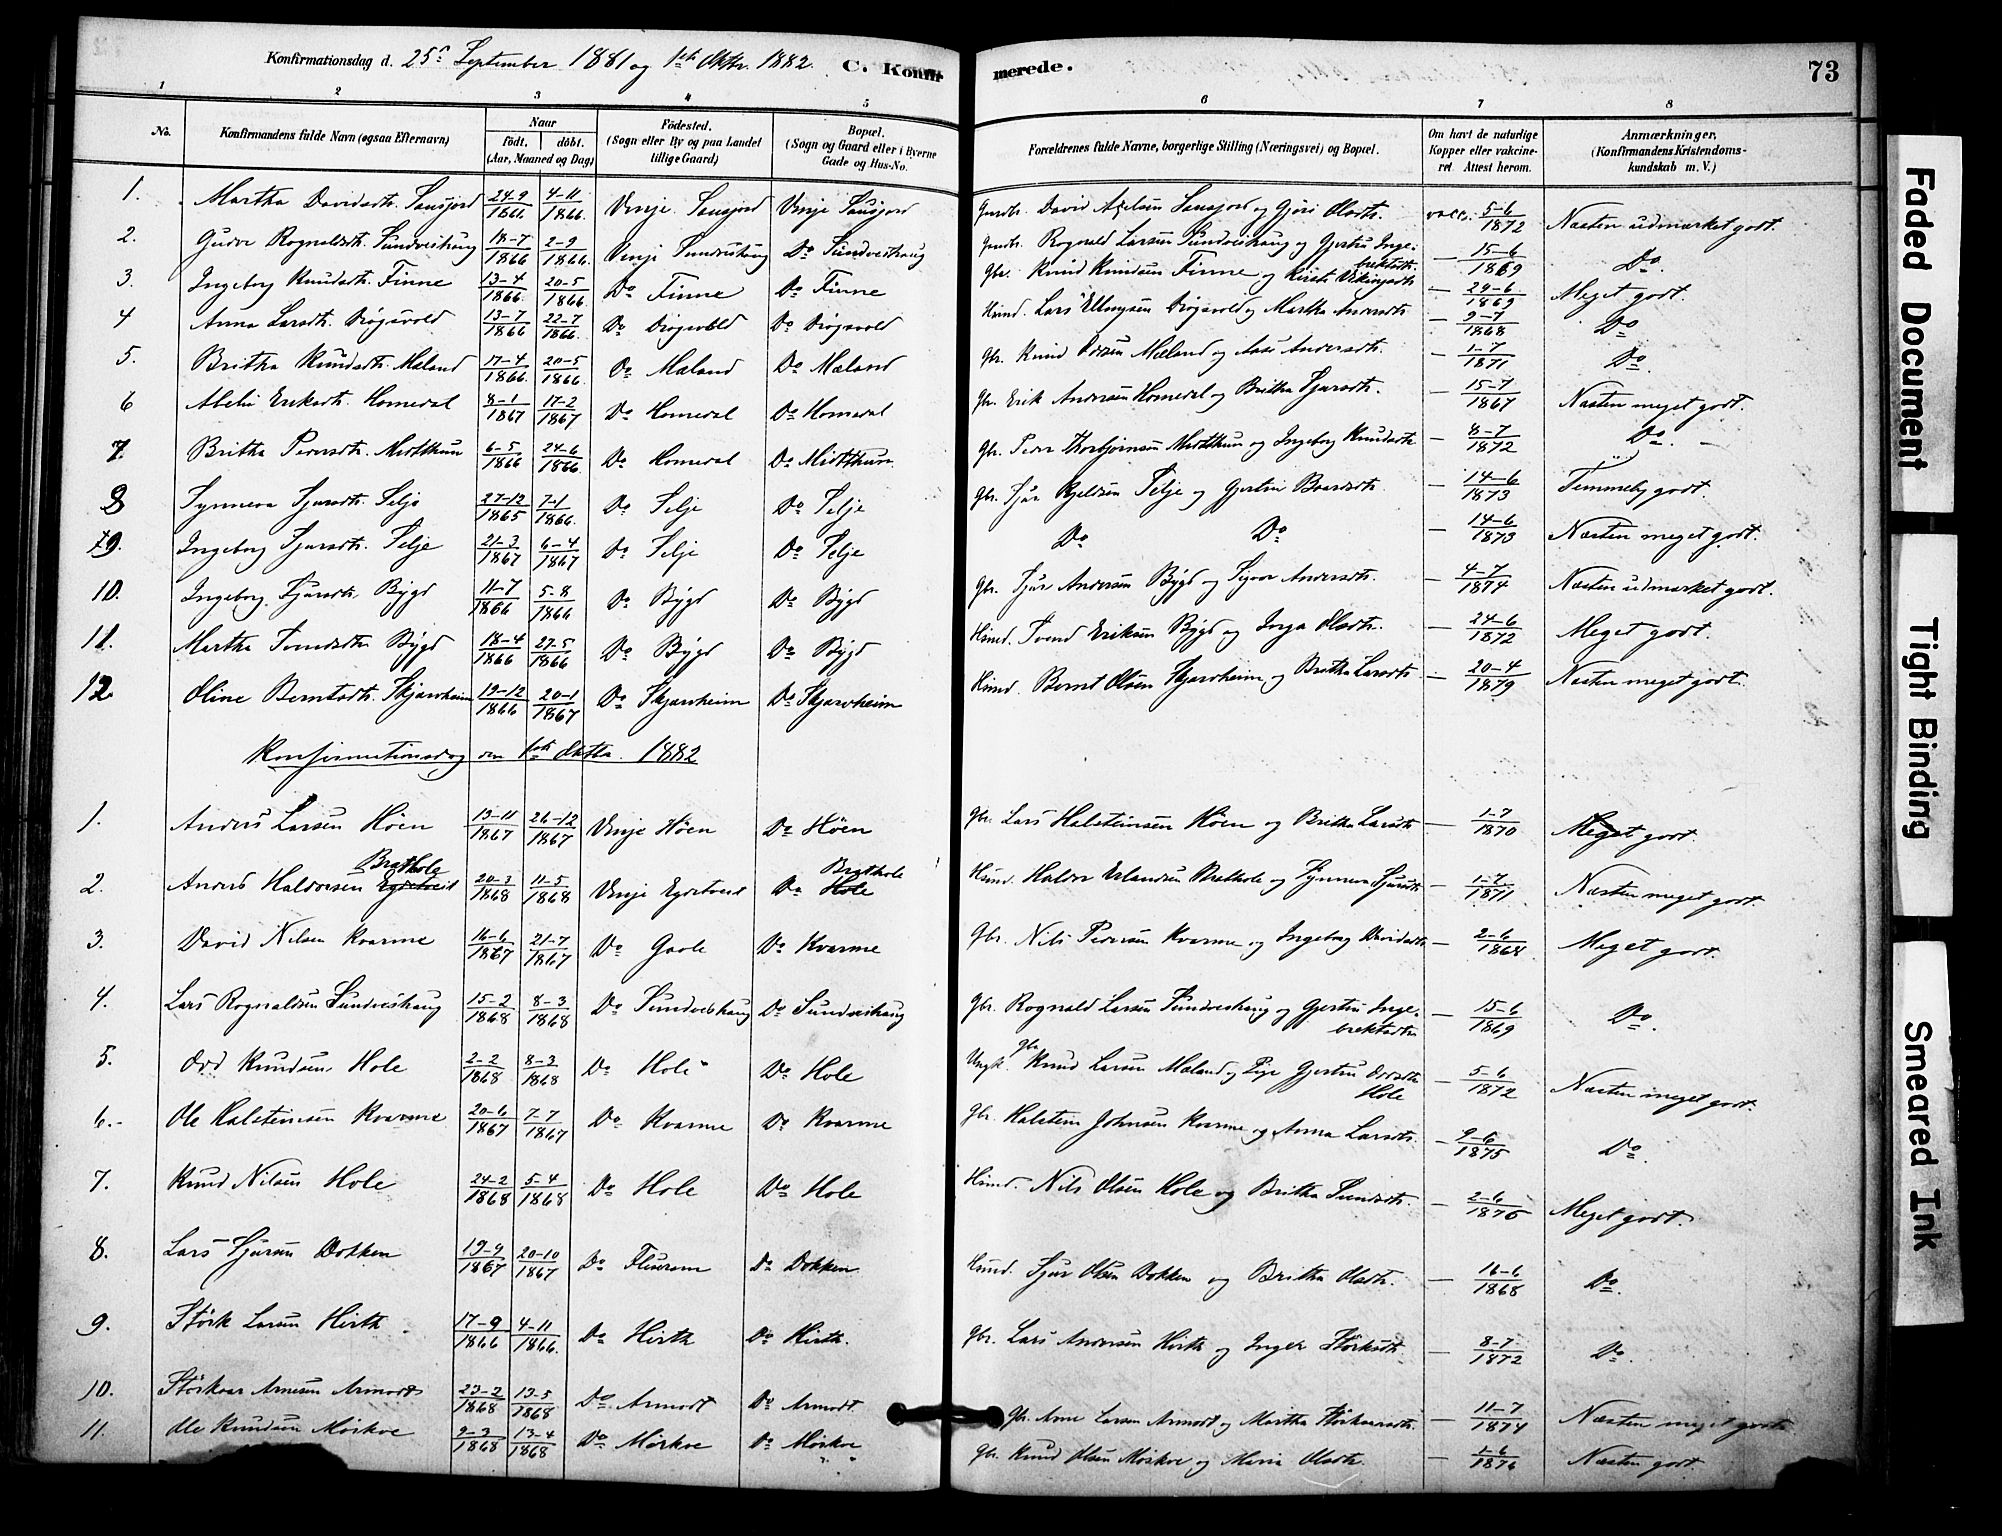 Konfirmationsdag d. 25de September 1881 og 1ste Oktbr. 1882. C. Konfir merede. 73
1 2 3 4 5 6 7 8
No. Konfirmandens fulde Navn (ogsaa Efternavn) Naar født, døbt. (Aar, Maaned og Dag) Fødested. (Sogn eller By og paa Landet tillige Gaard) Bopæl. (Sogn og Gaard eller i Byerne Gade og Hus-No. Forældrenes fulde Navne, borgerlige Stilling (Næringsvei) og Bopæl. Om havt de naturlige Kopper eller vakcineret Attest herom. Anmærkninger, (Konfirmandens Kristendomskundskab m. V.)
1. Martha Davidsdtr. Sausjord 24-9 1866 4-11 1866. Vinje Sausjord Vinje Sausjord Gmdbr. David Axelsen Sausjord og Gjøri Olsdtr. vacc. 5-6 1872 Næsten udmærket godt.
2. Guroe Rognaldsdtr. Sundveshaug 18-7 1866 2-9 1866. Vinje Sundveshaug Do Sundveshaug Gmdbr. Rognald Larsen Sundveshaug og Gjertru Ingebrektsdtr. — 15-6 1869 Do.
3. Ingeborg Knudsdtr. Finne 13-4 1866. 20-5 1866. Do Finne Do Finne Gbr. Knud Knudsen Finne og Kirsti Vikingsdtr. — 29-6 1869 Meget godt.
4 Anna Larsdtr. Drøgsvold 13-7 1866 22-7 1866. Do Drøgsvold Do Drøgsvold Husmd. Lars Ellingsen Drøgsvold og Martha Andersdtr. — 9-7 1868 Do
5. Britha Knudsdtr. Mæland 17-4 1866. 20-5 1866. Do Mæland Do Mæland Gbr. Knud Larsen Mæland og Aase Andersdtr. — 1-7 1871 Do
6 Abelu Eriksdtr. Homedal 8-1 1867 17-2 1867 Do Homedal Do Homedal Gbr. Erik Andersen Homedal og Britha Sjursdtr. — 15-7 1867 Næsten meget godt.
7. Britha Pedersdtr. Midtthun 6-5 1866 24-6 1866. Do Homedal Do Midtthun Gbr. Peder Thorbjørnsen Midtthun og Ingeborg Knudsdtr — 8-7 1872 Do.
8 Synneva Sjursdtr. Selje 27-12 1865 7-1 1866. Do Selje Do Selje Gbr. Sjur Kjeldsen Selje og Gjertru Baardsdtr. — 14-6 1873 Temmelig godt.
9. Ingeborg Sjursdtr. Selje 21-3 1867 6-4 1867 Do Selje Do Selje Do Do — 14-6 1873 Næsten meget godt.
10. Ingeborg Sjursdtr. Bygd 11-7 1866 5-8 1866 Do Bygd Do Bygd Gbr. Sjur Andersen Bygd og Sigvor Andersdtr. — 4-7 1874 Næsten udmærket godt.
11. Martha Svendsdtr Bygd 18-4 1866 27-5 1866 Do Bygd Do Bygd Husmd. Svend Eriksen Bygd og Inga Olsdtr. — 24-6 1872 Meget godt.
12 Oline Berntsdtr. Skjærvheim 19-12 1866 20-1 1867 Do Skjærvheim Do Skjærvheim Husmd. Bernt Olsen Skjærvheim og Britha Larsdtr — 20-4 1879 Næsten meget godt.
Konfirmationsdag den 1ste Oktbr. 1882
1. Anders Larsen Høen 13-11 1867 26-12 1867 Vinje Høen Do Høen Gbr. Lars Halsteinsen Høen og Britha Larsdtr — 1-7 1870 Meget godt.
2. Anders Haldorsen Eggetveid Brathole 20-3 1868 11-5 1868 Vinje Eggetveid Do Hole Brathole Husmd. Haldor Erlandsen Brathole og Synneva Sjursdtr — 1-7 1871 Næsten meget godt.
3. David Nilsen Kvarme 16-6 1867 21-7 1867 Do Gavle Do Kvarme Gbr. Nils Pedersen Kvarme og Ingeborg Davidsdtr — 2-6 1868 Meget godt.
4. Lars Rognaldsen Sundveshaug 15-2 1868 8-3 1868 Do Sundveshaug Do Sundveshaug Gbr. Rognald Larsen Sundveshaug og Gjertru Ingebrektsdtr — 15-6 1869 Do.
5. Odd Knudsen Hole 2-2 1868 8-3 1868 Do Hole Do Hole Ungk. gbr Knud Larsen Mæland og Pige Gjertru Oddsdtr Hole — 5-6 1872 Næsten meget godt.
6. Ole Halsteinsen Kvarme 20-6 1867 7-7 1867 Do Kvarme Do Kvarme Gbr. Halstein Johnsen Kvarme og Anna Larsdtr. — 9-6 1875 Do.
7. Knud Nilsen Hole 24-2 1868 5-4 1868 Do Hole Do Hole Husmd. Nils Olsen Hole og Britha Svendsdtr. — 2-6 1876 Meget godt.
8. Lars Sjursen Dokken 19-9 1867 20-10 1867 Do Do Dokken Husmd. Sjur Olsen Dokken og Britha Olsdtr. — 16-6 1868 Do.
9. Størk Larsen Hirth 17-9 1866 4-11 1866. Do Hirth Do Hirth. Gbr. Lars Andersen Hirth og Inger Størksdtr. — 8-7 1872 Do.
10. Størkaar Arnesen Armodt 23-2 1868 13-5 1868 Do Armodt Do Armodt Gbr. Arne Larsen Armodt og Martha Størkaarsdtr. — 11-7 1874 Næsten meget godt.
11. Ole Knudsen Mørkve 9-3 1868 13-4 1868 Do Mørkve Do Mørkve Gbr. Knud Olsen Mørkve og Maria Olsdtr. — 1-6 1876 Næsten godt.
Faded Document
Tight Binding
Smeared Ink